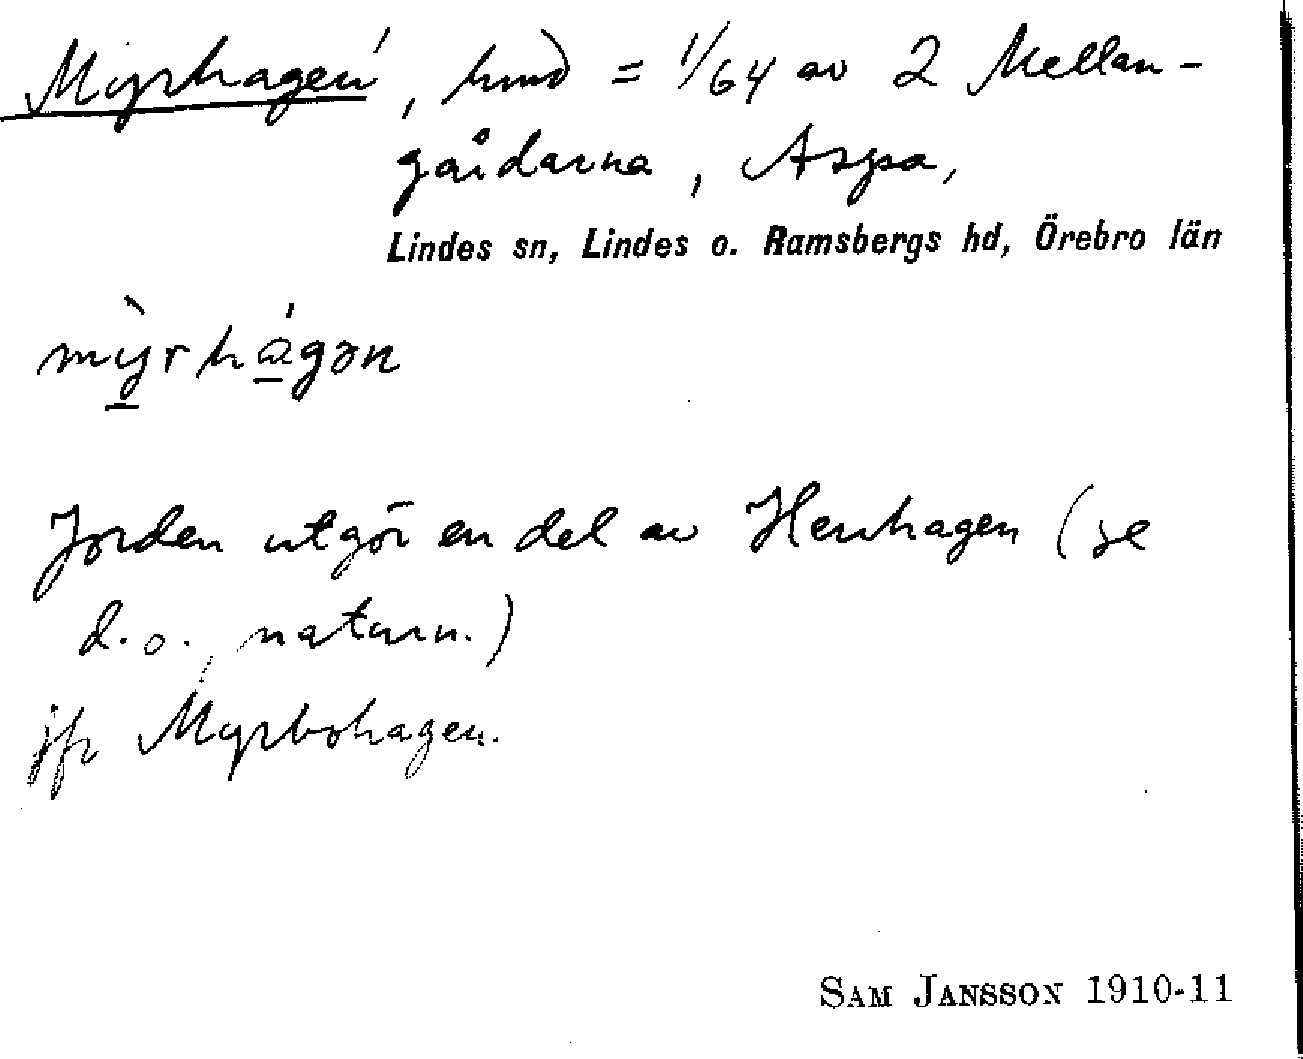 Myrhagen, hmd = 1/64 av 2 Mellan-
gårdarna, Aspa,
Lindes sn, Lindes o. Ramsbergs hd, Örebro län
mỳ̲rhá̲gən
Jorden utgör en del av Herrhagen (se
d.o., naturn.)
jfr Myrbohagen.
SAM JANSSON 1910-11